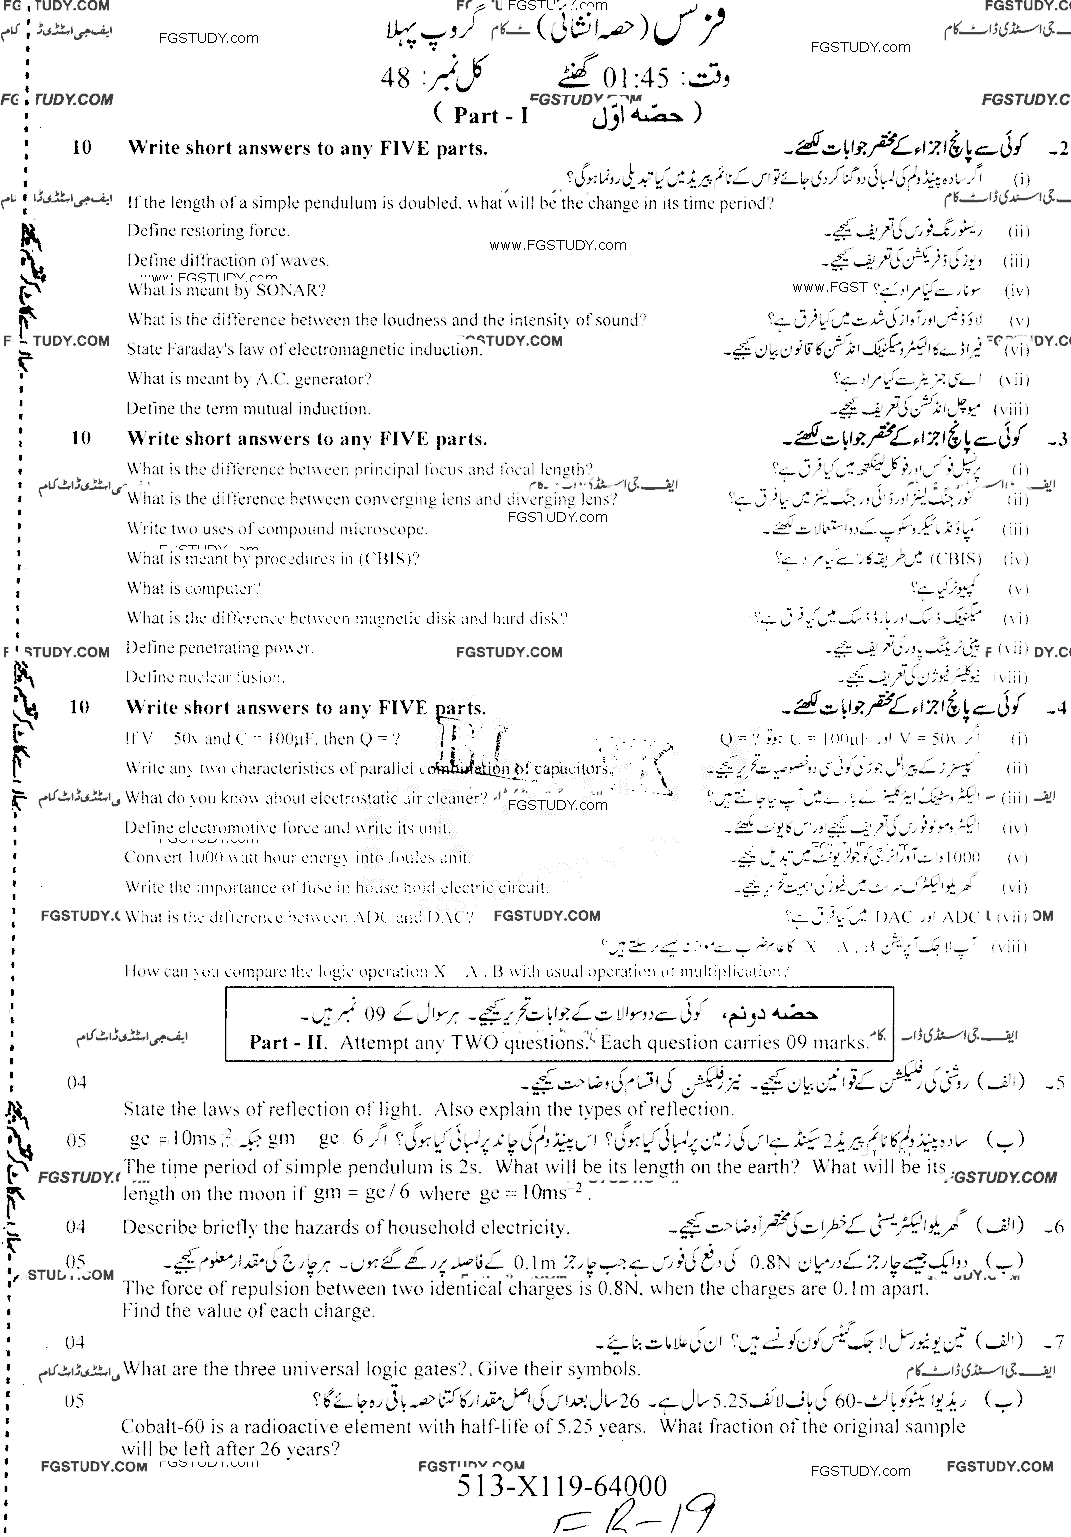 فزکس (حصہ انشائی) گروپ پہلا
وقت: 01:45 گھنٹے کل نمبر: 48
( Part - I حصّہ اوّل )
2۔ کوئی سے پانچ اجزاء کے مختصر جوابات لکھئے۔ Write short answers to any FIVE parts. 10
(i) اگر سادہ پینڈولم کی لمبائی دوگنا کر دی جائے تو اس کے ٹائم پیریڈ میں کیا تبدیلی رونما ہوگی؟
If the length of a simple pendulum is doubled, what will be the change in its time period?
Define restoring force. ریسٹورنگ فورس کی تعریف کیجیے۔ (ii)
www.FGSTUDY.com
Define diffraction of waves. ویوز کی ڈفریکشن کی تعریف کیجیے۔ (iii)
What is meant by SONAR? سونار سے کیا مراد ہے؟ (iv)
What is the difference between the loudness and the intensity of sound? لاؤڈنیس اور آواز کی شدت میں کیا فرق ہے؟ (v)
State Faraday's law of electromagnetic induction. فیراڈے کا الیکٹرومیگنیٹک انڈکشن کا قانون بیان کیجیے۔ (vi)
What is meant by A.C. generator? اے سی جنریٹر سے کیا مراد ہے؟ (vii)
Define the term mutual induction. میوچل انڈکشن کی تعریف کیجیے۔ (viii)
3۔ کوئی سے پانچ اجزاء کے مختصر جوابات لکھئے۔ Write short answers to any FIVE parts. 10
What is the difference between principal focus and focal length? پرنسپل فوکس اور فوکل لینگتھ میں کیا فرق ہے؟ (i)
What is the difference between converging lens and diverging lens? کنورجنگ لینز اور ڈائی ورجنگ لینز میں کیا فرق ہے؟ (ii)
FGSTUDY.com
Write two uses of compound microscope. کمپاؤنڈ مائیکروسکوپ کے دو استعمالات لکھئے۔ (iii)
What is meant by procedures in (CBIS)? (CBIS) میں طریقہ کار سے کیا مراد ہے؟ (iv)
What is computer? کمپیوٹر کیا ہے؟ (v)
What is the difference between magnetic disk and hard disk? میگنیٹک ڈسک اور ہارڈ ڈسک میں کیا فرق ہے؟ (vi)
Define penetrating power. پینی ٹریٹنگ پاور کی تعریف کیجیے۔ (vii)
FGSTUDY.COM
Define nuclear fusion. نیوکلیئر فیوژن کی تعریف کیجیے۔ (viii)
4۔ کوئی سے پانچ اجزاء کے مختصر جوابات لکھئے۔ Write short answers to any FIVE parts. 10
If V = 50v and C = 100µF, then Q = ? اگر V = 50v اور C = 100µF ہو تو Q = ? (i)
Write any two characteristics of parallel combination of capacitors. (ii)
What do you know about electrostatic air cleaner? الیکٹروسٹیٹک ایئر کلینر کے بارے میں آپ کیا جانتے ہیں؟ (iii)
FGSTUDY.com
Define electromotive force and write its unit. الیکٹروموٹو فورس کی تعریف کیجیے اور اس کا یونٹ لکھئے۔ (iv)
Convert 1000 watt hour energy into Joules unit. 1000 واٹ آور انرجی کو جولز یونٹ میں تبدیل کیجیے۔ (v)
Write the importance of fuse in house hold electric circuit. گھریلو الیکٹرک سرکٹ میں فیوز کی اہمیت تحریر کیجیے۔ (vi)
What is the difference between ADC and DAC? ADC اور DAC میں کیا فرق ہے؟ (vii)
FGSTUDY.COM
(viii) آپ لاجک آپریشن X = A . B کا عام ضرب سے موازنہ کیسے کر سکتے ہیں؟
How can you compare the logic operation X = A . B with usual operation of multiplication?
حصّہ دوئم، کوئی سے دو سوالات کے جوابات تحریر کیجیے۔ ہر سوال کے 09 نمبر ہیں۔
Part - II. Attempt any TWO questions. Each question carries 09 marks.
5۔ (الف) روشنی کی رفلیکشن کے قوانین بیان کیجیے۔ نیز رفلیکشن کی اقسام کی وضاحت کیجیے۔ 04
State the laws of reflection of light. Also explain the types of reflection.
(ب) سادہ پینڈولم کا ٹائم پیریڈ 2 سیکنڈ ہے اس کی زمین پر لمبائی کیا ہوگی؟ اس پینڈولم کی چاند پر لمبائی کیا ہوگی؟ اگر gm = ge/6 جبکہ ge = 10ms⁻² 05
The time period of simple pendulum is 2s. What will be its length on the earth? What will be its
length on the moon if gm = ge/6 where ge = 10ms⁻².
6۔ (الف) گھریلو الیکٹریسٹی کے خطرات کی مختصراً وضاحت کیجیے۔ Describe briefly the hazards of household electricity. 04
(ب) دو ایک جیسے چارجز کے درمیان 0.8N کی دفع کی فورس ہے جب چارجز 0.1m کے فاصلہ پر رکھے گئے ہوں۔ ہر چارج کی مقدار معلوم کیجیے۔ 05
The force of repulsion between two identical charges is 0.8N, when the charges are 0.1m apart.
Find the value of each charge.
7۔ (الف) تین یونیورسل لاجک گیٹس کون کونسے ہیں؟ ان کی علامات بنائیے۔ 04
What are the three universal logic gates?. Give their symbols.
(ب) ریڈیو ایکٹو کوبالٹ-60 کی ہاف لائف 5.25 سال ہے۔ 26 سال بعد اس کی اصل مقدار کا کتنا حصہ باقی رہ جائے گا؟ 05
Cobalt-60 is a radioactive element with half-life of 5.25 years. What fraction of the original sample
will be left after 26 years?
FGSTUDY.COM FGSTUDY.com FGSTUDY.COM
513-X119-64000